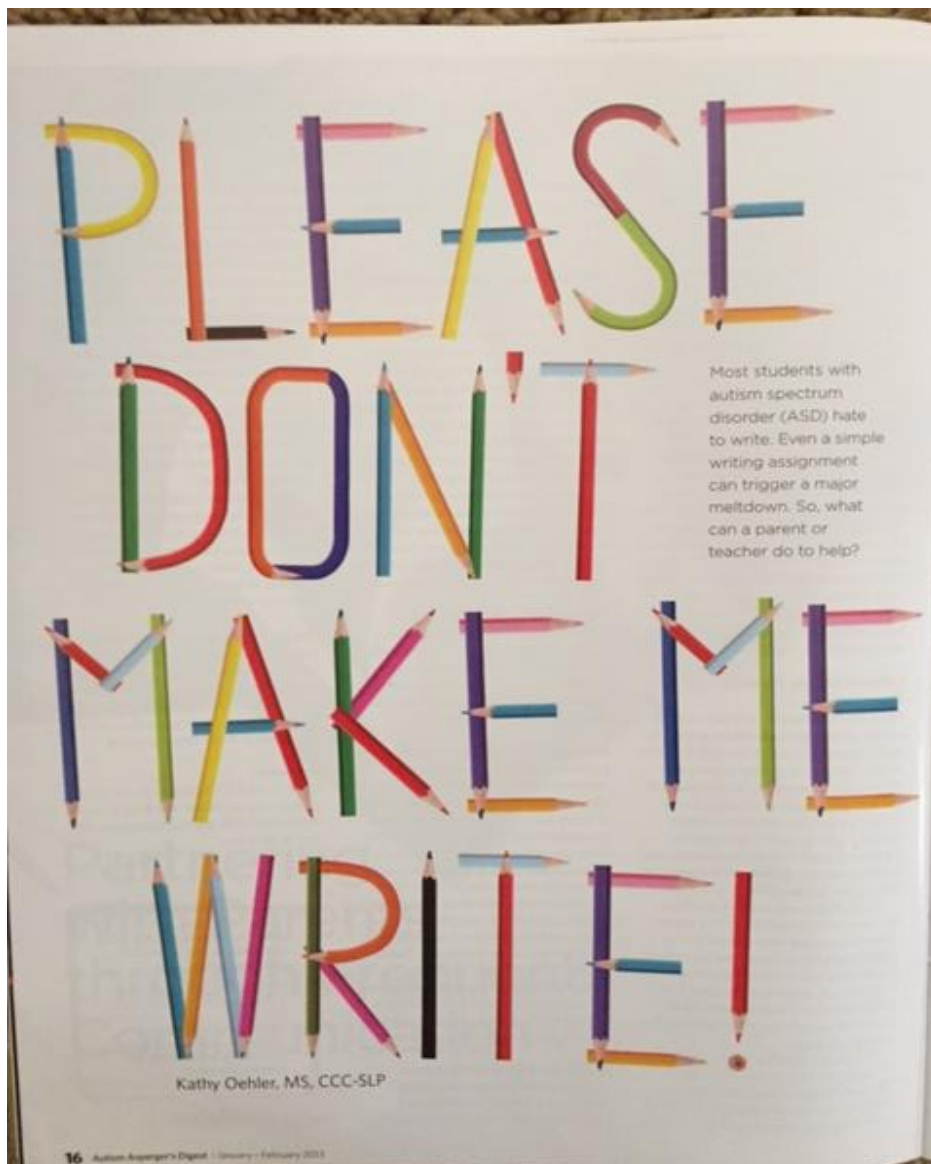 PLEASE
DON'T
Most students with
autism spectrum
disorder (ASD) hate
to write. Even a simple
writing assignment
can trigger a major
meltdown. So, what
can a parent or
teacher do to help?
MAKE ME
WRITE!
Kathy Oehler, MS, CCC-SLP
16 Autism Asperger's Digest | January - February 2013